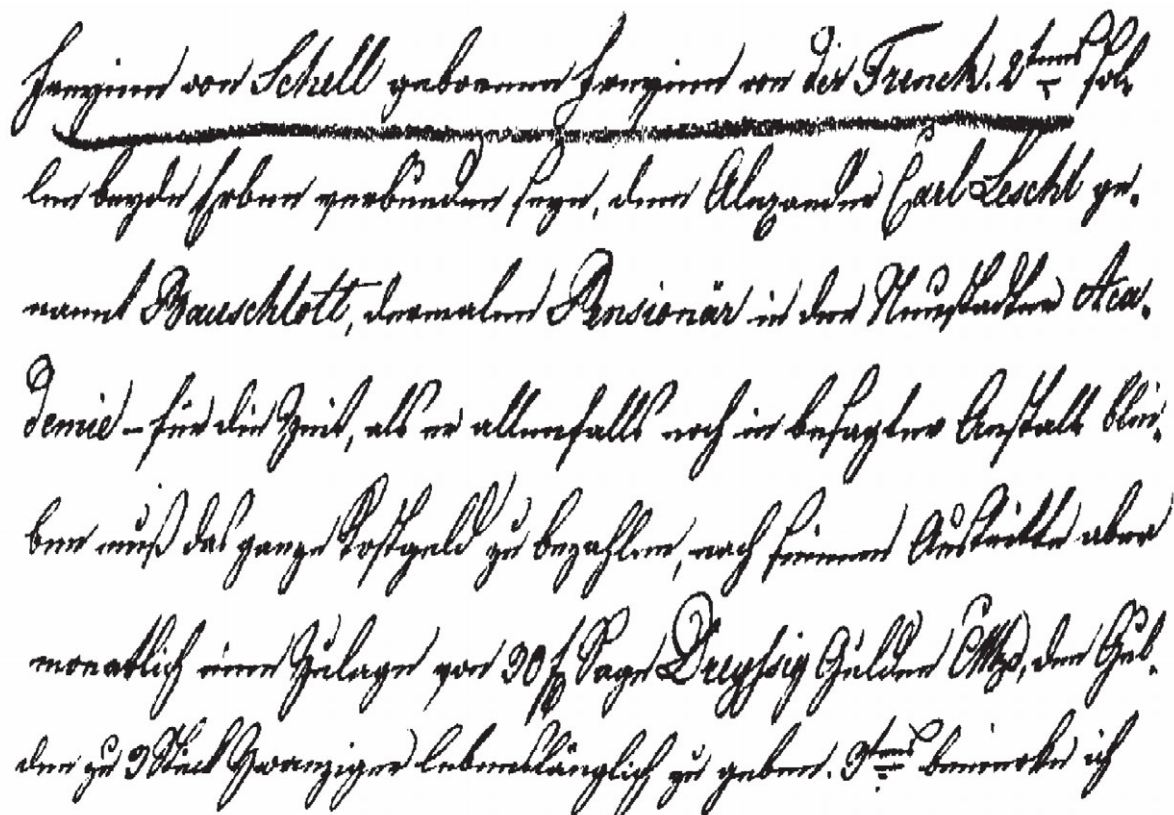 Freyinn von Schell geborenen Freyinn von der Trenck. 2tens sol-
len beyde Erben verbunden seyn, dem Alexander Carl Leschl ge-
nannt Bauschlott, dermalen Pensionär in der Neustadter Aca-
demie – für die Zeit, als er allenfalls noch in besagter Anstalt blei-
ben muß das ganze Kostgeld zu bezahlen, nach seinem Austritte aber
monatlich eine Zulage von 30 f Sage Dreyssig Gulden CMz, den Gul-
den zu 3 Stück Zwanziger lebenslänglich zu geben. 3tens bemerke ich